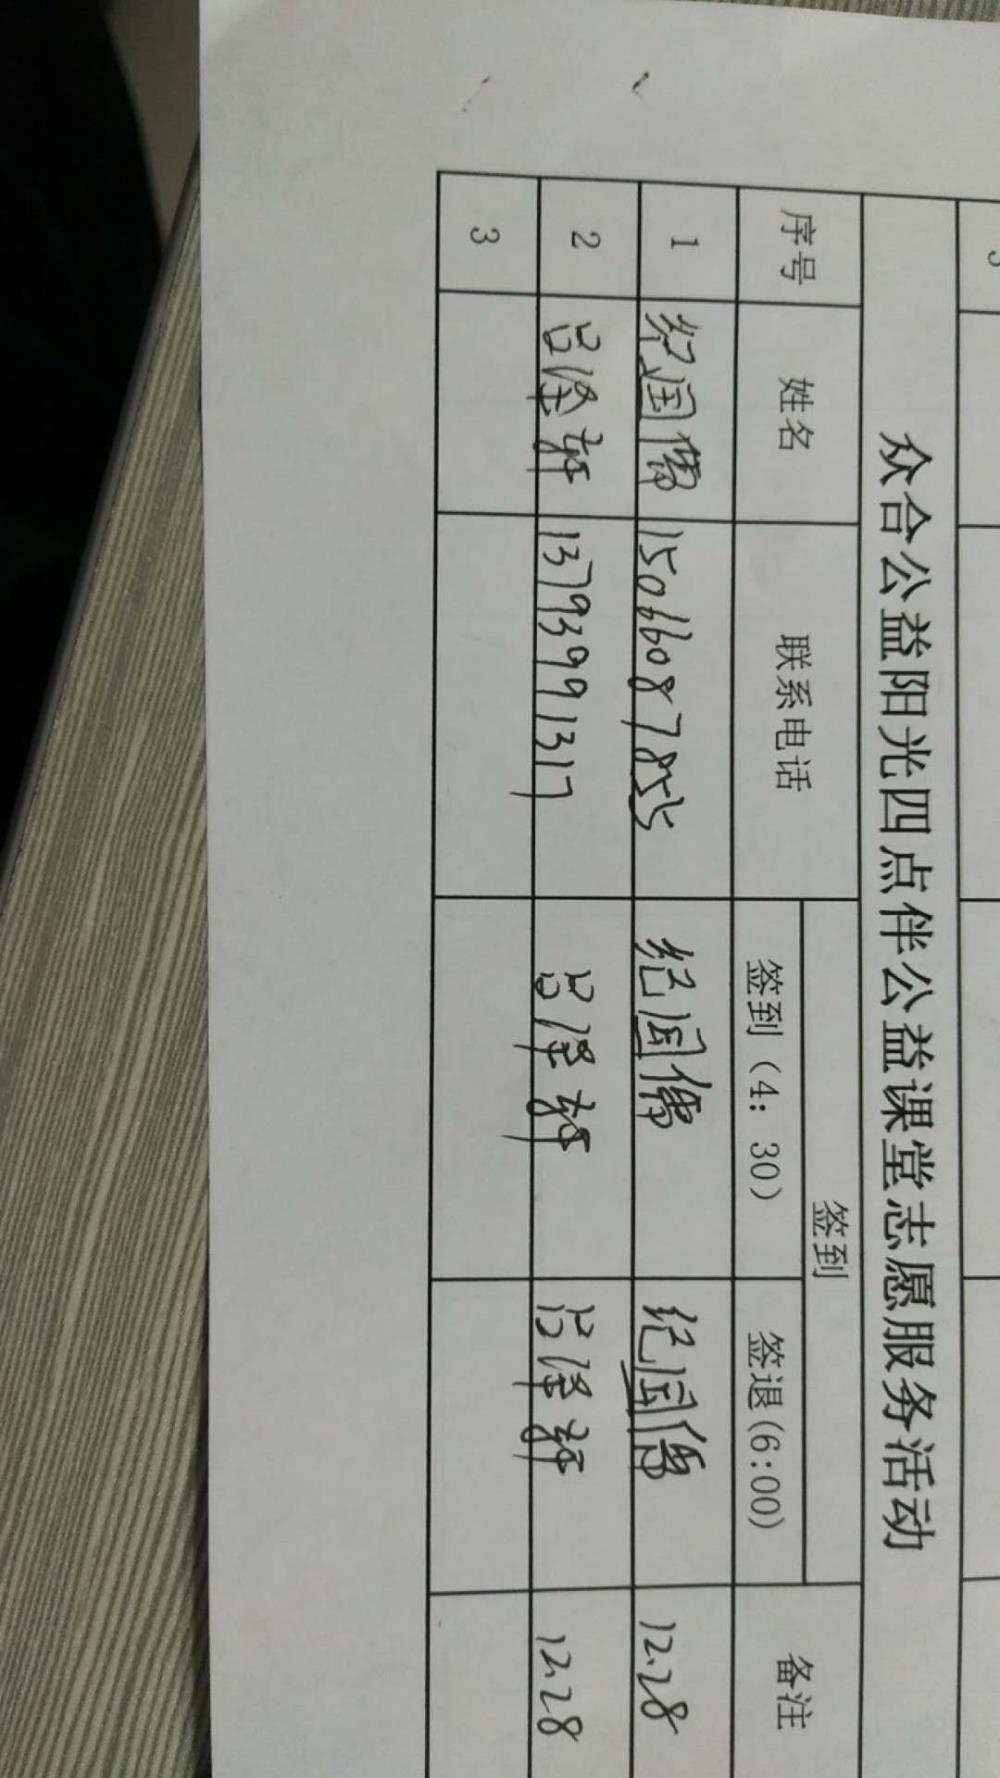 众合公益阳光四点伴公益课堂志愿服务活动
序号 姓名 联系电话 签到 备注
签到（4：30） 签退(6:00)
1 纪国儒 15066087855 纪国儒 纪国儒 12.28
2 吕泽新 13793991317 吕泽新 吕泽新 12.28
3